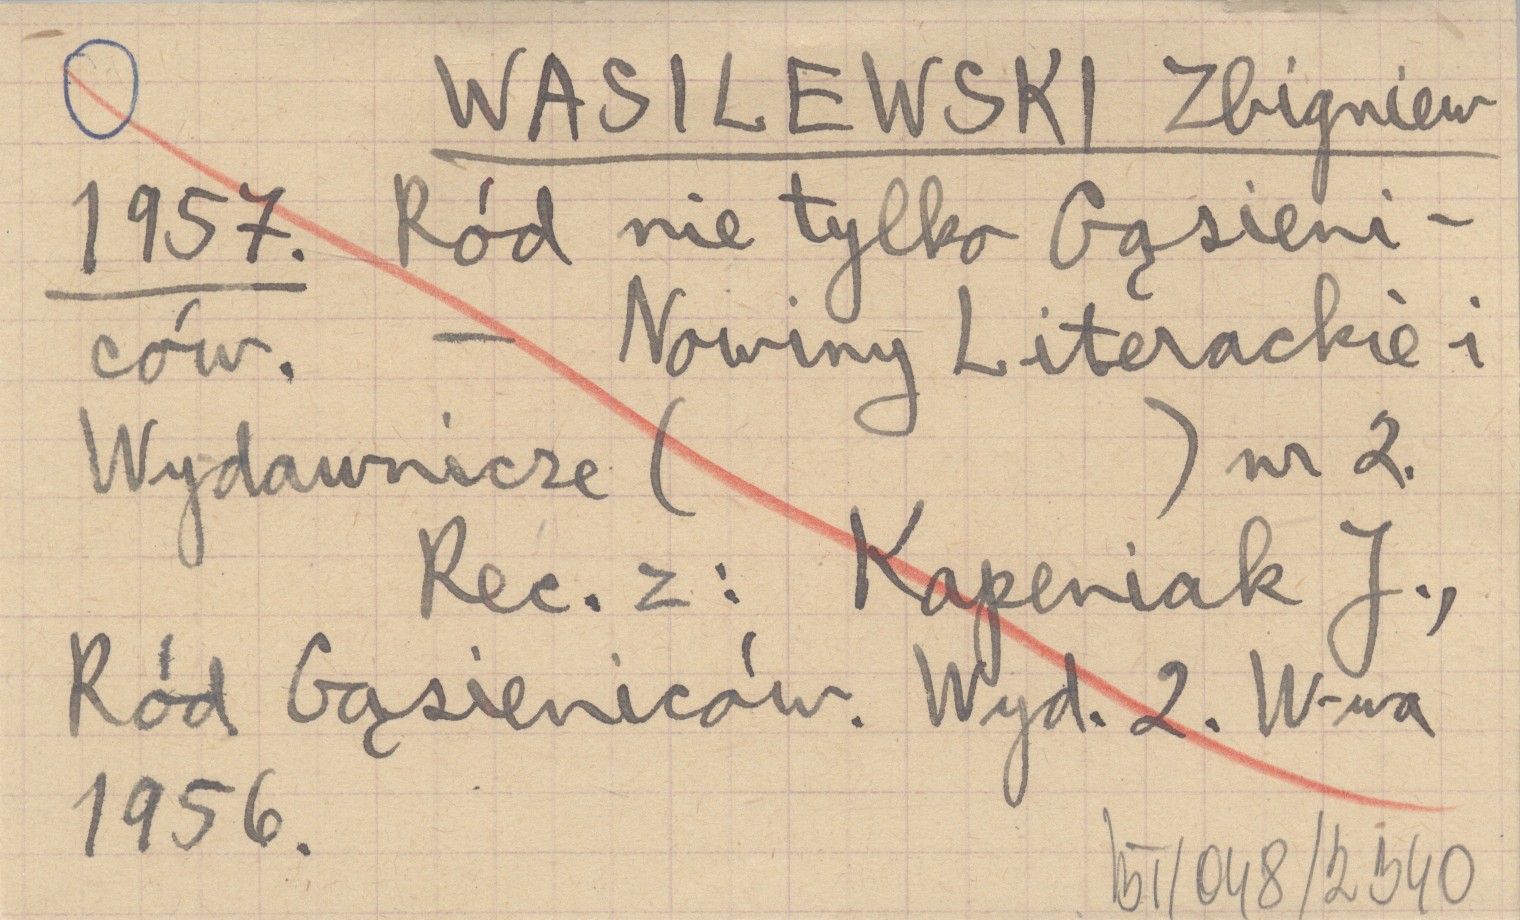 WASILEWSKI Zbigniew
1957. Ród nie tylko Gąsieni-
ców. — Nowiny Literackie i
Wydawnicze ( ) nr 2.
Rec. z: Kapeniak J.,
Ród Gąsieniców. Wyd. 2. W-wa
1956.
/048/2540